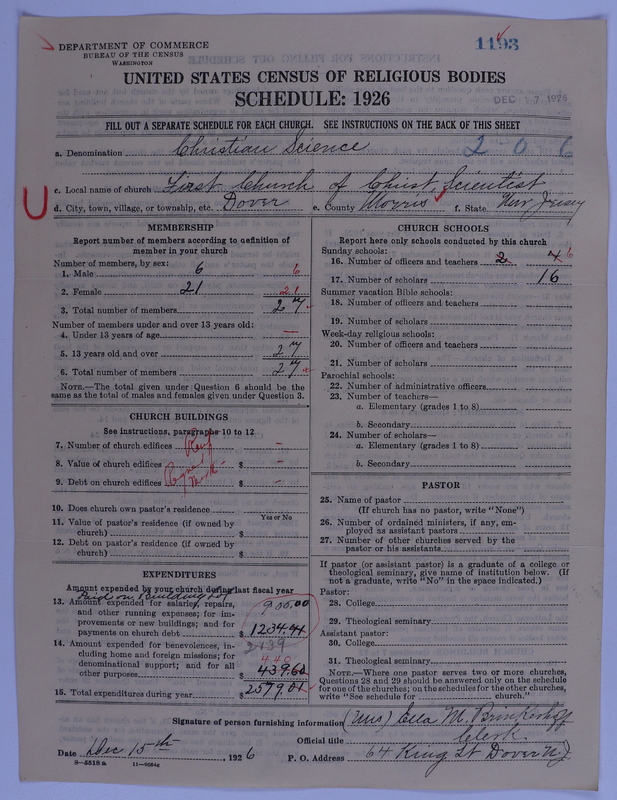 DEPARTMENT OF COMMERCE
BUREAU OF THE CENSUS
WASHINGTON
1193
UNITED STATES CENSUS OF RELIGIOUS BODIES
SCHEDULE: 1926
DEC 17 1926
FILL OUT A SEPARATE SCHEDULE FOR EACH CHURCH. SEE INSTRUCTIONS ON THE BACK OF THIS SHEET
a. Denomination Christian Science 2 0 6
c. Local name of church First Church of Christ, Scientist
d. City, town, village, or township, etc. Dover e. County Morris f. State New Jersey
MEMBERSHIP
Report number of members according to definition of
member in your church
Number of members, by sex:
1. Male 6 6
2. Female 21 21
3. Total number of members 27
Number of members under and over 13 years old:
4. Under 13 years of age —
5. 13 years old and over 27
6. Total number of members 27
NOTE.—The total given under Question 6 should be the
same as the total of males and females given under Question 3.
CHURCH BUILDINGS
See instructions, paragraphs 10 to 12
7. Number of church edifices –
8. Value of church edifices $ –
9. Debt on church edifices $ –
10. Does church own pastor's residence
Yes or No
11. Value of pastor's residence (if owned by
church) $
12. Debt on pastor's residence (if owned by
church) $
EXPENDITURES
Amount expended by your church during last fiscal year
Paid on Building Lot 900.00
13. Amount expended for salaries, repairs,
and other running expenses; for im-
provements or new buildings; and for
payments on church debt $ 1234.41
2139
14. Amount expended for benevolences, in-
cluding home and foreign missions; for
denominational support; and for all
other purposes $ 439.60
440
15. Total expenditures during year $ 2579.01
CHURCH SCHOOLS
Report here only schools conducted by this church
Sunday schools:
16. Number of officers and teachers 2 4 6
17. Number of scholars 16
Summer vacation Bible schools:
18. Number of officers and teachers
19. Number of scholars
Week-day religious schools:
20. Number of officers and teachers
21. Number of scholars
Parochial schools:
22. Number of administrative officers
23. Number of teachers—
a. Elementary (grades 1 to 8)
b. Secondary
24. Number of scholars—
a. Elementary (grades 1 to 8)
b. Secondary
PASTOR
25. Name of pastor
(If church has no pastor, write "None")
26. Number of ordained ministers, if any, em-
ployed as assistant pastors
27. Number of other churches served by the
pastor or his assistants
If pastor (or assistant pastor) is a graduate of a college or
theological seminary, give name of institution below. (If
not a graduate, write "No" in the space indicated.)
Pastor:
28. College
29. Theological seminary
Assistant pastor:
30. College
31. Theological seminary
NOTE.—Where one pastor serves two or more churches,
Questions 28 and 29 should be answered only on the schedule
for one of the churches; on the schedules for the other churches,
write "See schedule for church."
Signature of person furnishing information (Mrs) Ella M. Brinkerhoff
Official title Clerk.
Date Dec 15th, 1926 P. O. Address 64 King St Dover N.J.
8—5518a 11—9604c